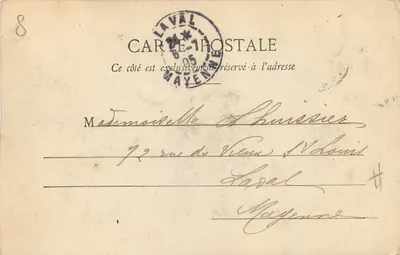 8
LAVAL
MAYENNE
CARTE POSTALE
Ce côté est exclusivement réservé à l'adresse
Mademoiselle Lhuissier
72 rue du Vieux St Louis
Laval
Mayenne